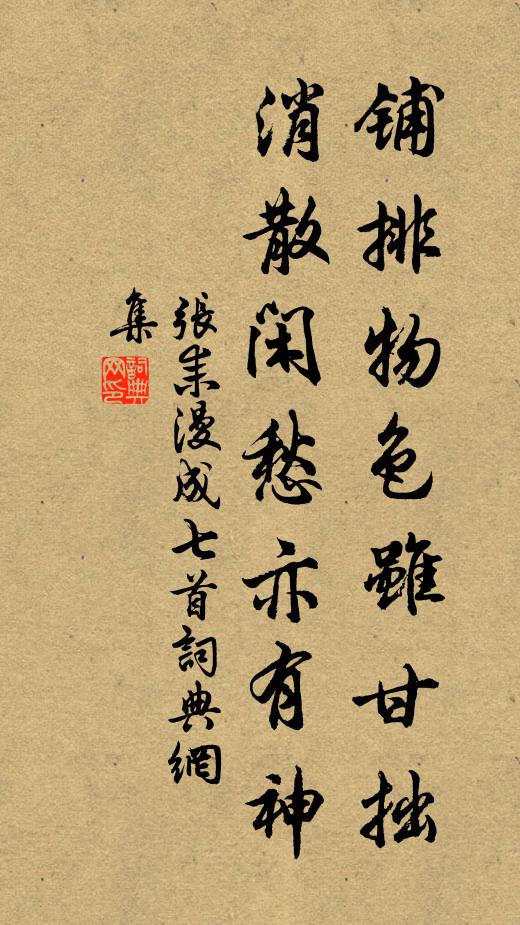 铺排物色雖甘拙
消散閑愁亦有神
張耒漫成七首詞典網
集
詞典
网印